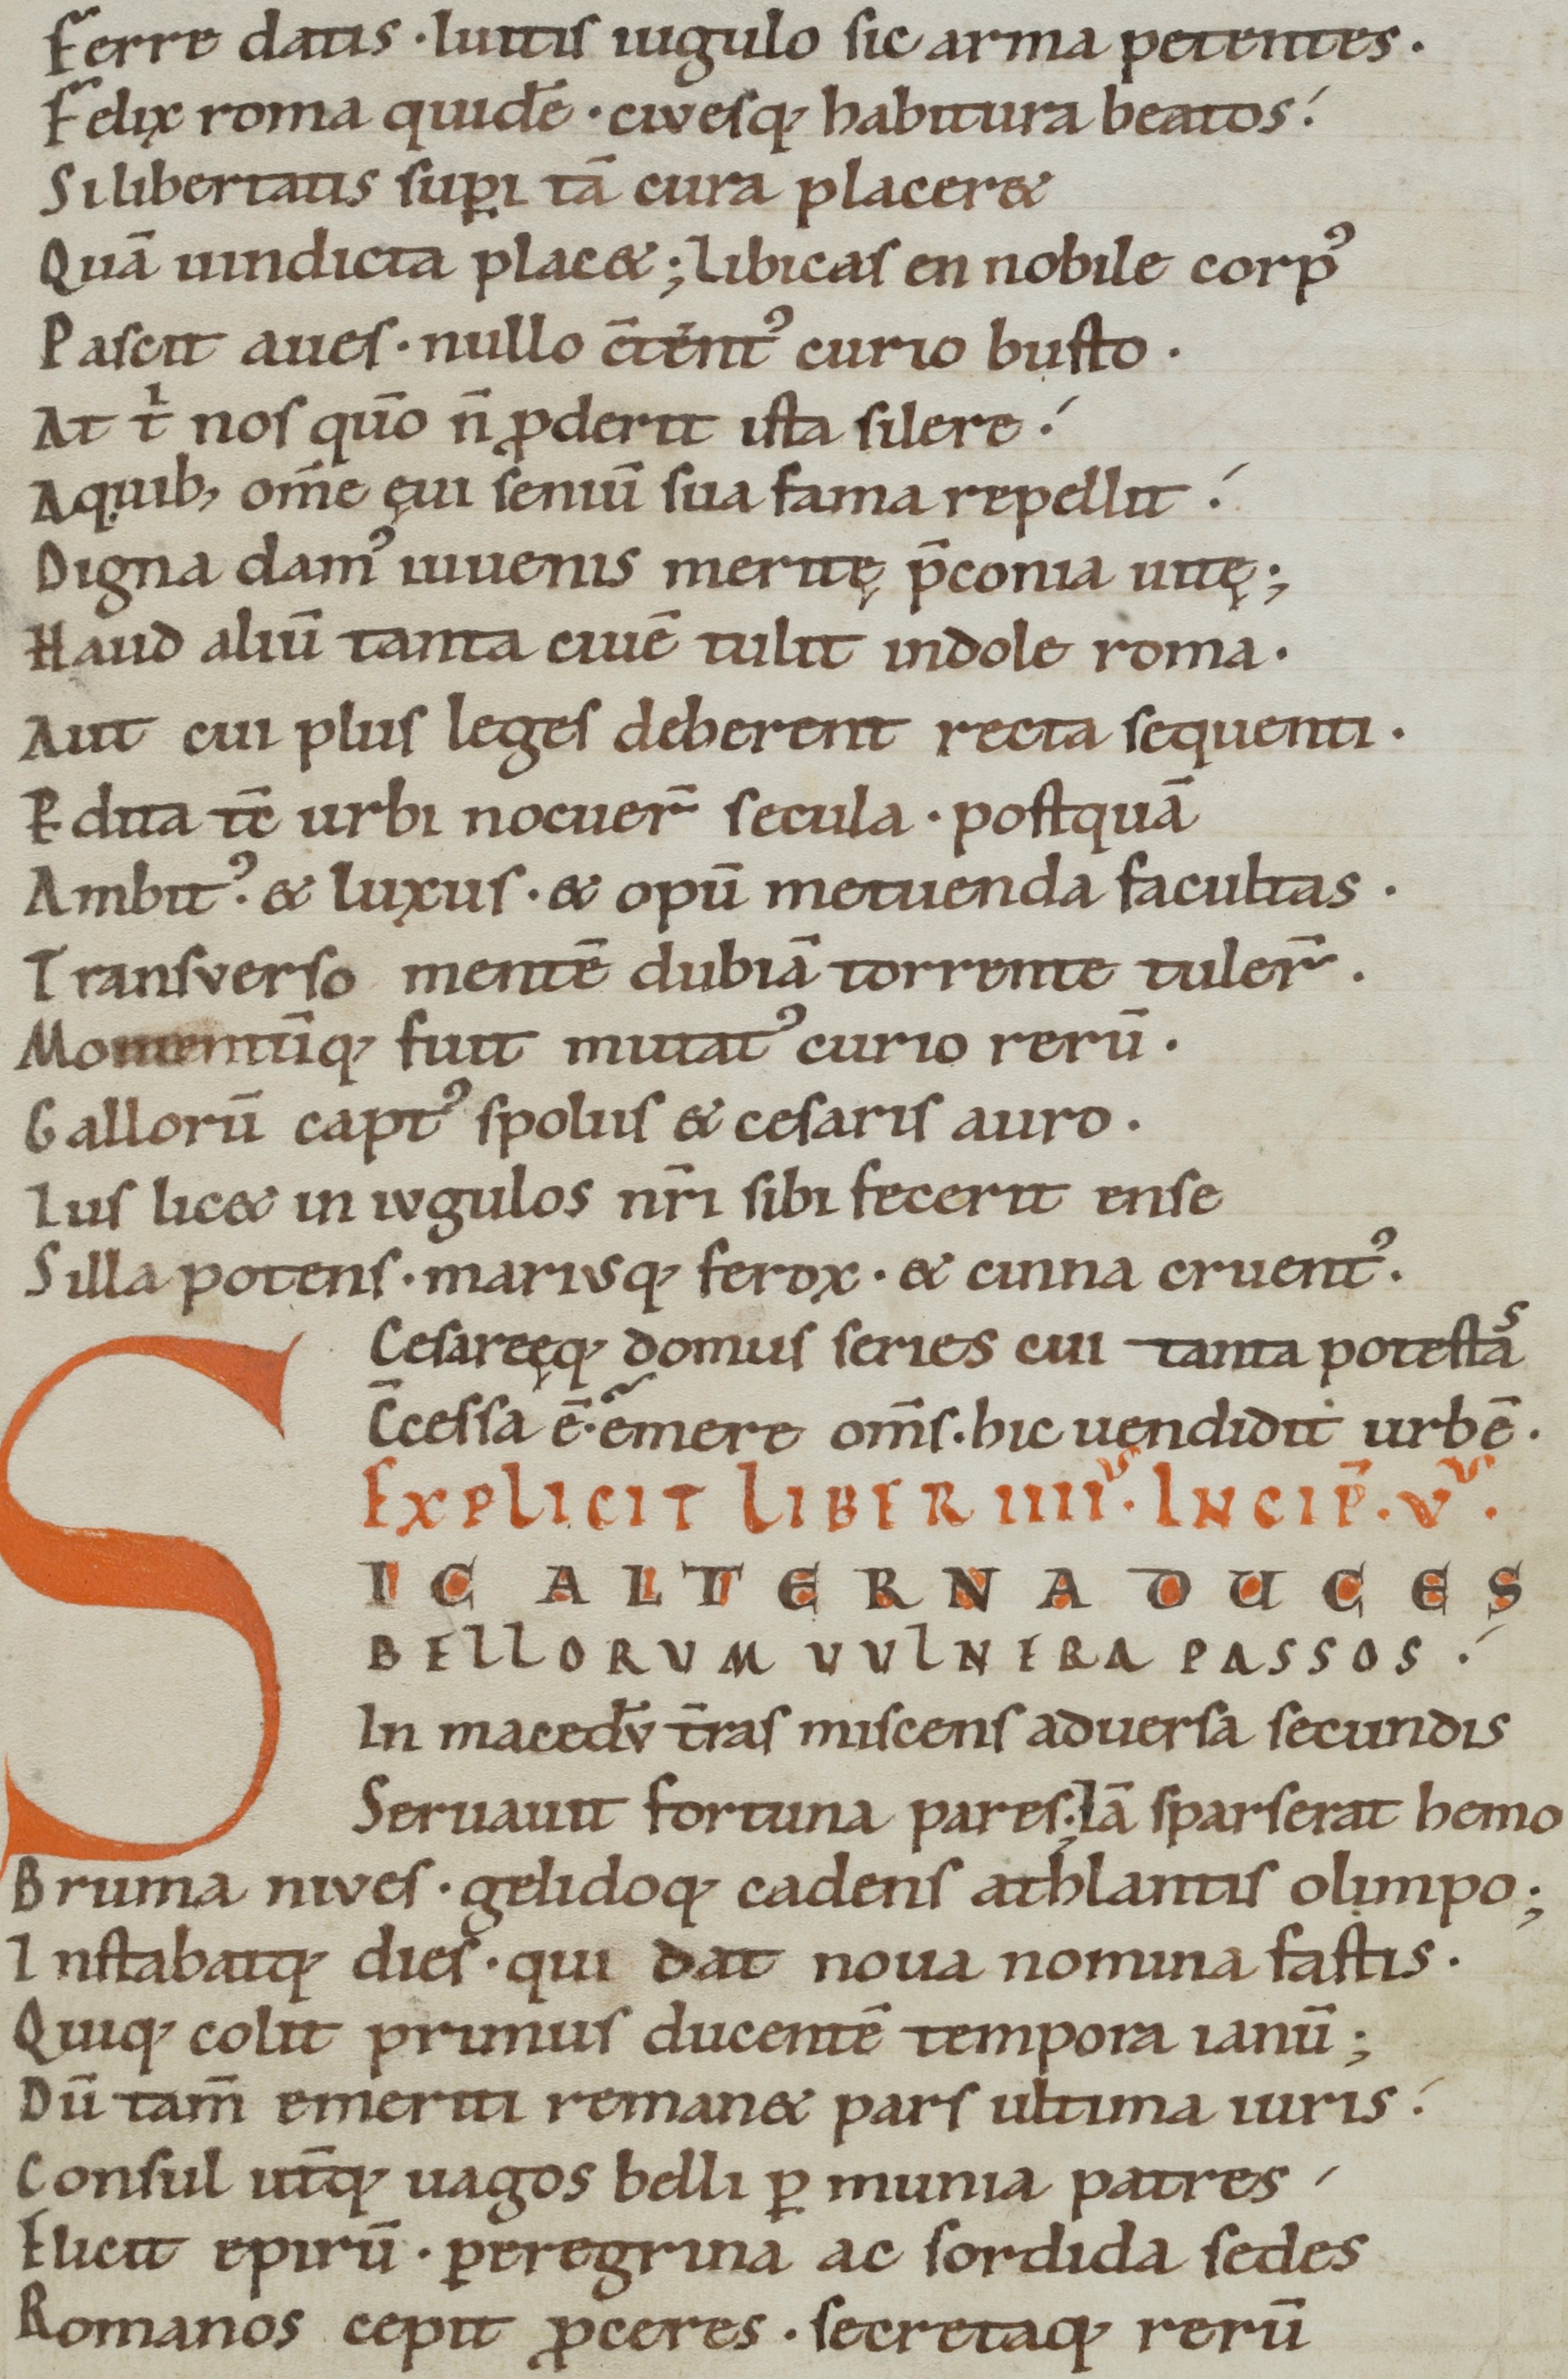 Ferre datis · luitis iugulo sic arma petentes ·
Felix roma quidē · civesq; habitura beatos
Si libertatis suꝑi tā cura placer&
Quā uindicta plac& ; Libicas en nobile corpꝰ
Pascit aues · nullo c̄tentꝰ curio busto ·
At t̍ nos qūo n̄ ꝓderit ista silere
A quib; om̄e ęui seniū sua fama repellit
Digna damꝰ iuuenis meritę p̄conia uitę ;
Haud aliū tanta ciuē tulit indole roma ·
Aut cui plus leges deberent recta sequenti ·
Ꝑdita tc̄ urbi nocuer̄ secula · postquā
Ambitꝰ · & luxus · & opū metuenda facultas ·
Transverso mentē dubiā torrente tuler̄ ·
Momentūq; fuit mutatꝰ curio rerū ·
Gallorū captꝰ spoliis & cesaris auro ·
Ius lic& in ivgulos nr̄i sibi fecerit ense
Silla potens · marivsq; ferox · & cinna cruentꝰ ·
Cesareęq; domus series cui tanta potestas
C̄cessa ē · emere om̄s · hic uendidit urbē ·
EXPLICIT LIBER IIII᷒ · INCIP̄ · V᷒ ·
SIC ALTERNA DUCES
BELLORVM VVLNERA PASSOS
In macedv̄ t̄ras miscens aduersa secundis
Seruauit fortuna pares ; Iā sparserat hemo
Bruma nives · gelidoq; cadens athlantis olimpo ;
Instabatq; dies · qui dat noua nomina fastis ·
Quiq; colit primus ducentē tempora ianū ;
Dū tam̄ emeriti reman& pars ultima iuris
Consul ut̄q; uagos belli ꝑ munia patres
Elicit epirū · ꝑegrina ac sordida sedes
Romanos cepit ꝓceres · secretaq; rerū